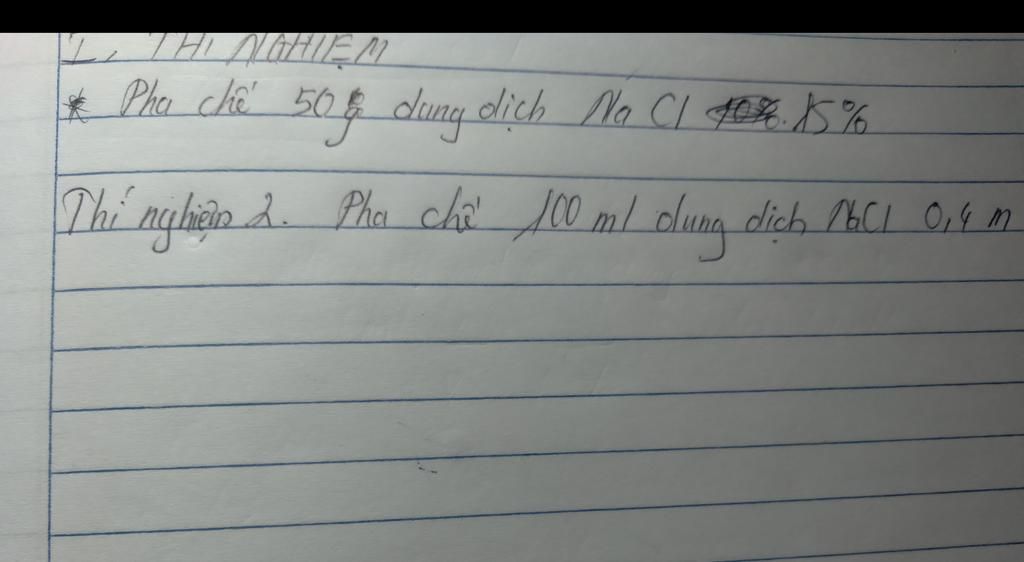 I, THÍ NGHIỆM
* Pha chế 50g dung dịch NaCl 15%
Thí nghiệm 2. Pha chế 100 ml dung dịch NaCl 0,4 m